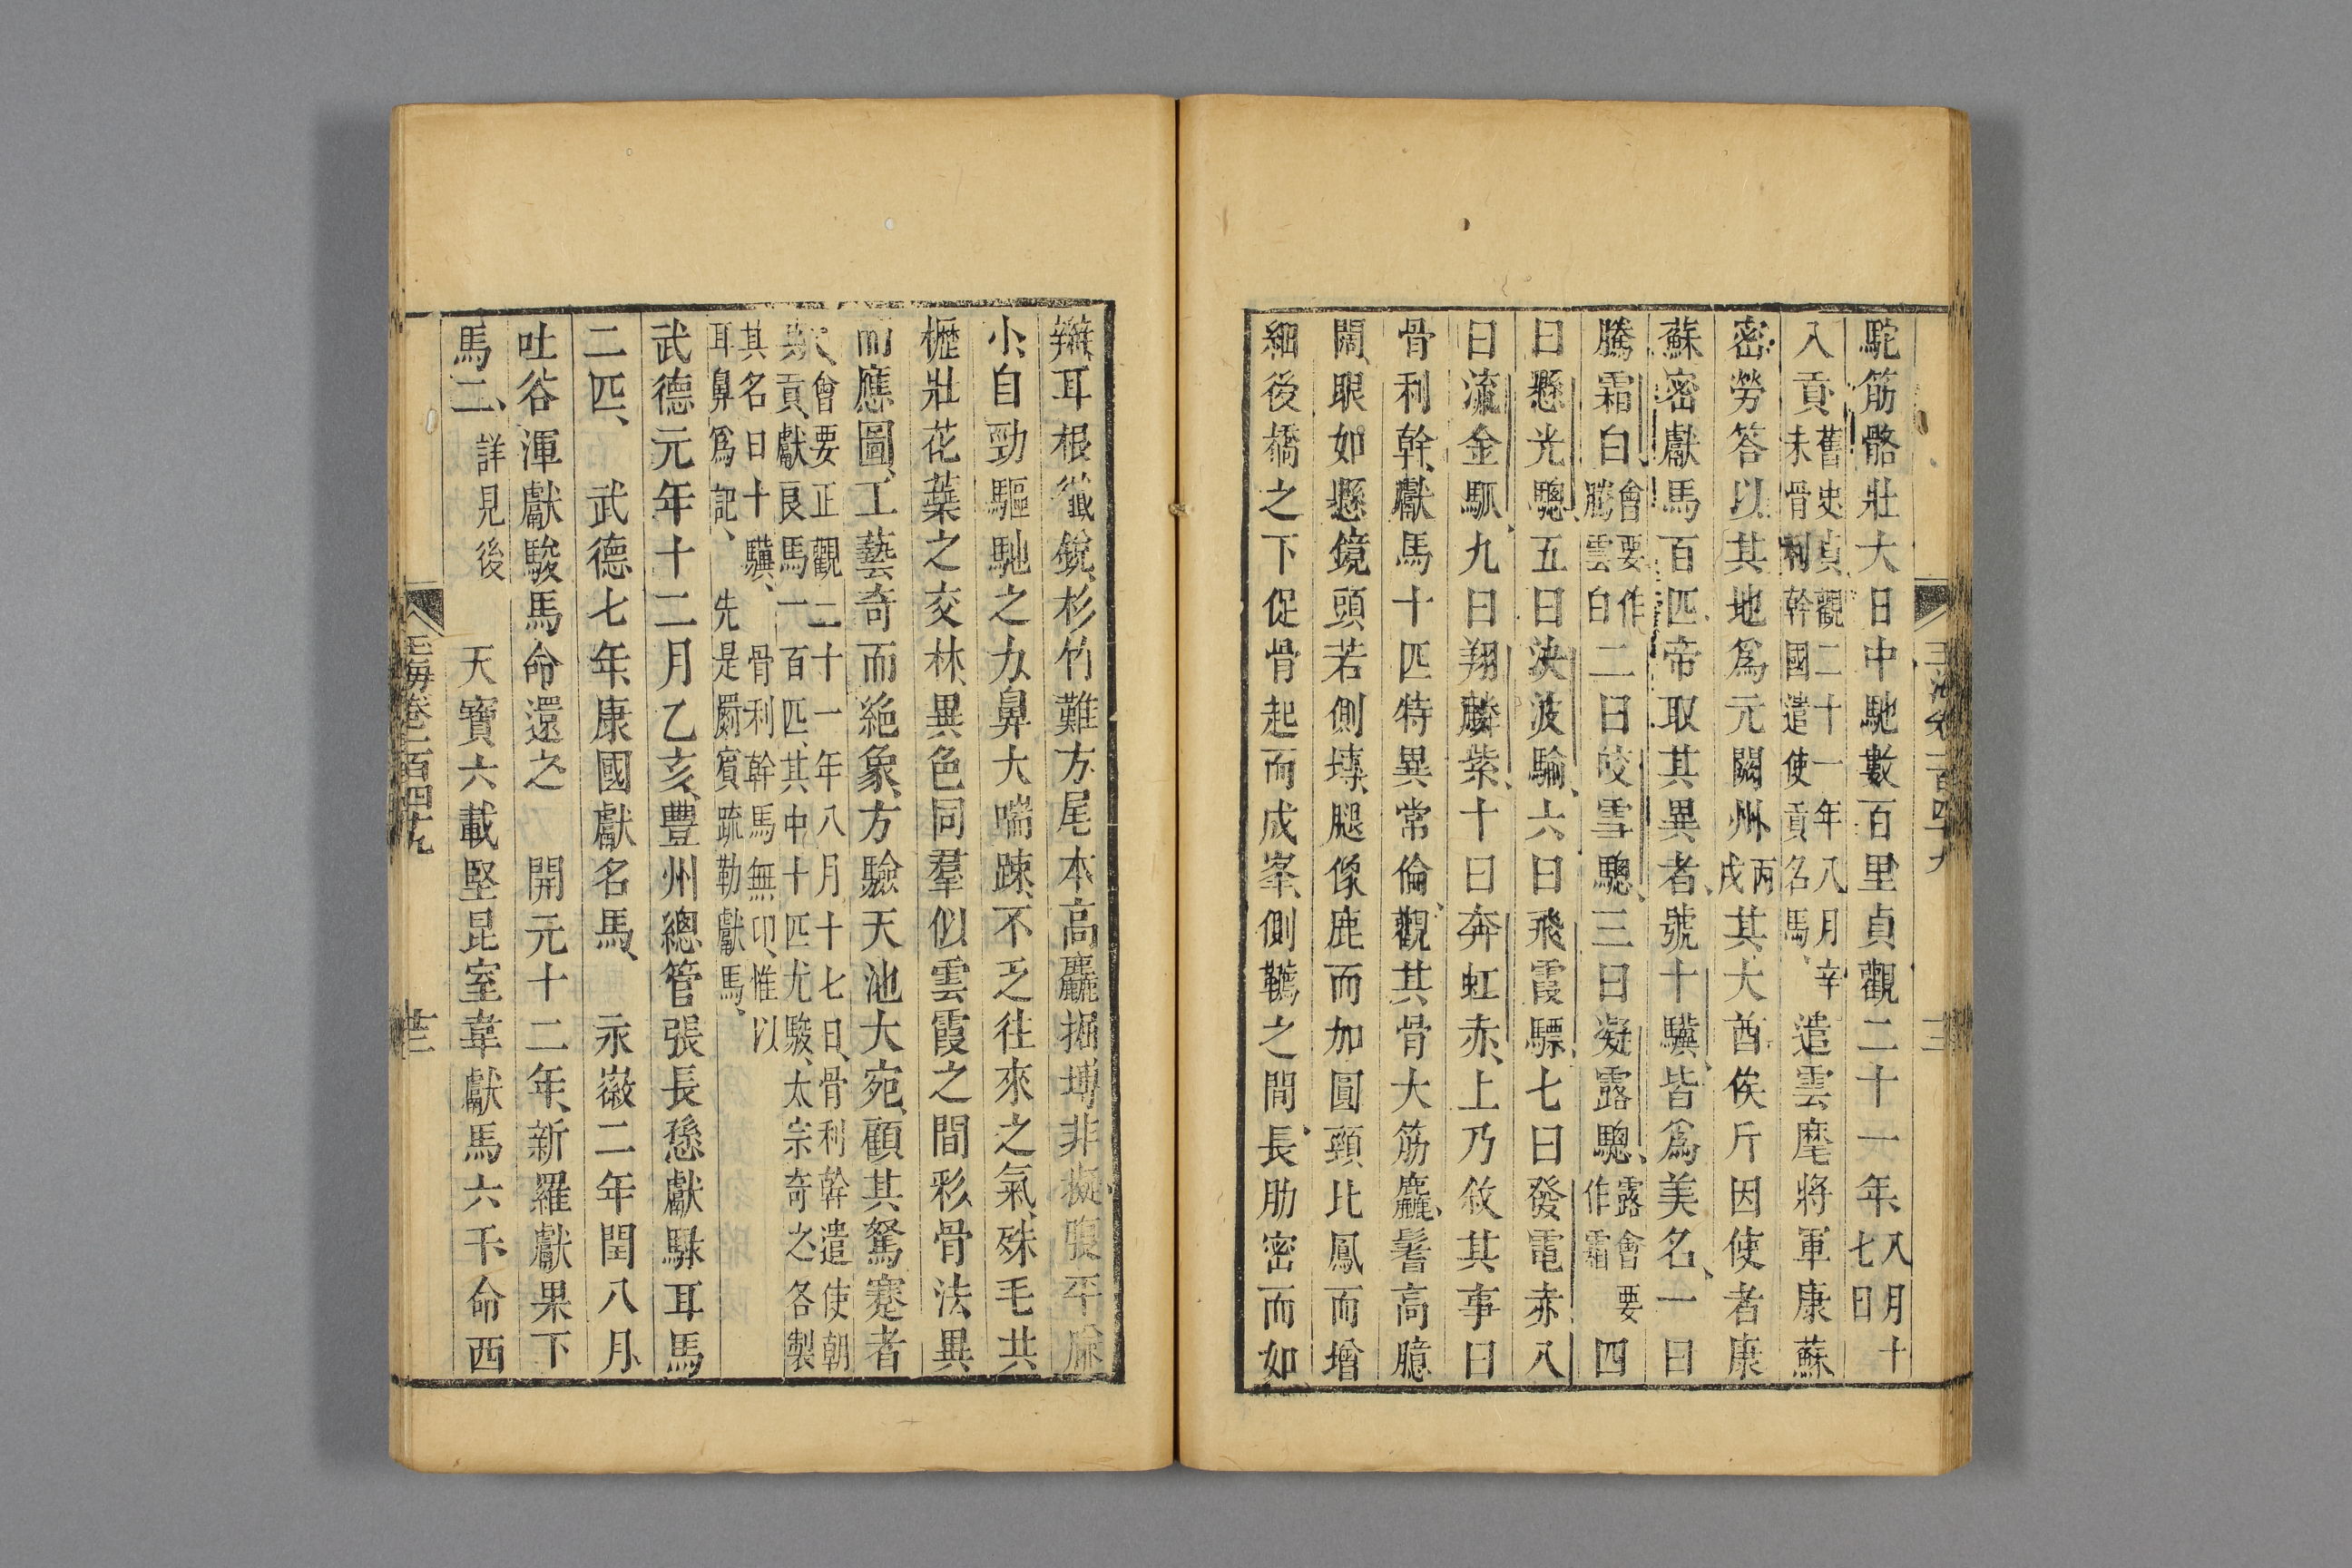 駝筋骼壯大日中馳數百里貞觀二十一年八月十七日
入貢舊史貞觀二十一年八月辛未骨利幹國遣使貢名馬遣雲麾將軍康蘇
密勞答以其地爲元闕州丙戌其大酋俟斤因使者康
蘇密獻馬百匹帝取其異者號十驥皆爲美名一曰
騰霜白會要作騰雲白二曰皎雪驄三曰凝露驄露會要作霜四
曰懸光驄五曰決波騟六曰飛霞驃七曰發電赤八
曰流金䯄九曰翔麟紫十曰奔虹赤上乃敘其事曰
骨利幹獻馬十匹特異常倫觀其骨大筋麤鬐高臆
闊眼如懸鏡頭若側塼腿像鹿而加圓頸比鳳而增
細後橋之下促骨起而成峯側韉之間長肋密而如
辮耳根纖銳杉竹難方尾本高麤掘塼非擬腹平䐓
小自勁驅馳之力鼻大喘疎不乏往來之氣殊毛共
櫪壯花葉之交林異色同羣似雲霞之間彩骨法異
而應圖工藝奇而絶象方驗天池大宛顧其駑蹇者
會要正觀二十一年八月十七日骨利幹遣使朝貢獻良馬一百匹其中十匹尤駿太宗奇之各製
其名曰十驥骨利幹馬無印惟以耳鼻爲記先是罽賓疏勒獻馬
武德元年十二月乙亥豐州總管張長愻獻騄耳馬
二匹武德七年康國獻名馬永徽二年閏八月
吐谷渾獻駿馬命還之開元十二年新羅獻果下
馬二詳見後天寶六載堅昆室韋獻馬六千命西
玉海卷一百四十九
三
玉海卷一百四十九